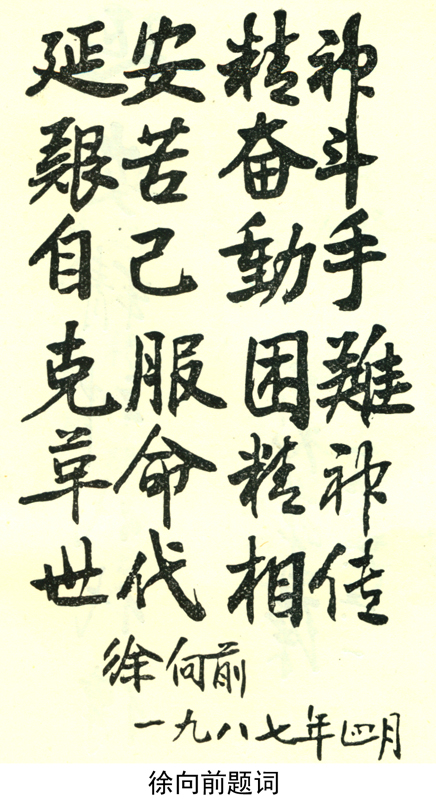 延安精神
艰苦奋斗
自己動手
克服困難
革命精神
世代相传
徐向前
一九八七年四月
徐向前题词